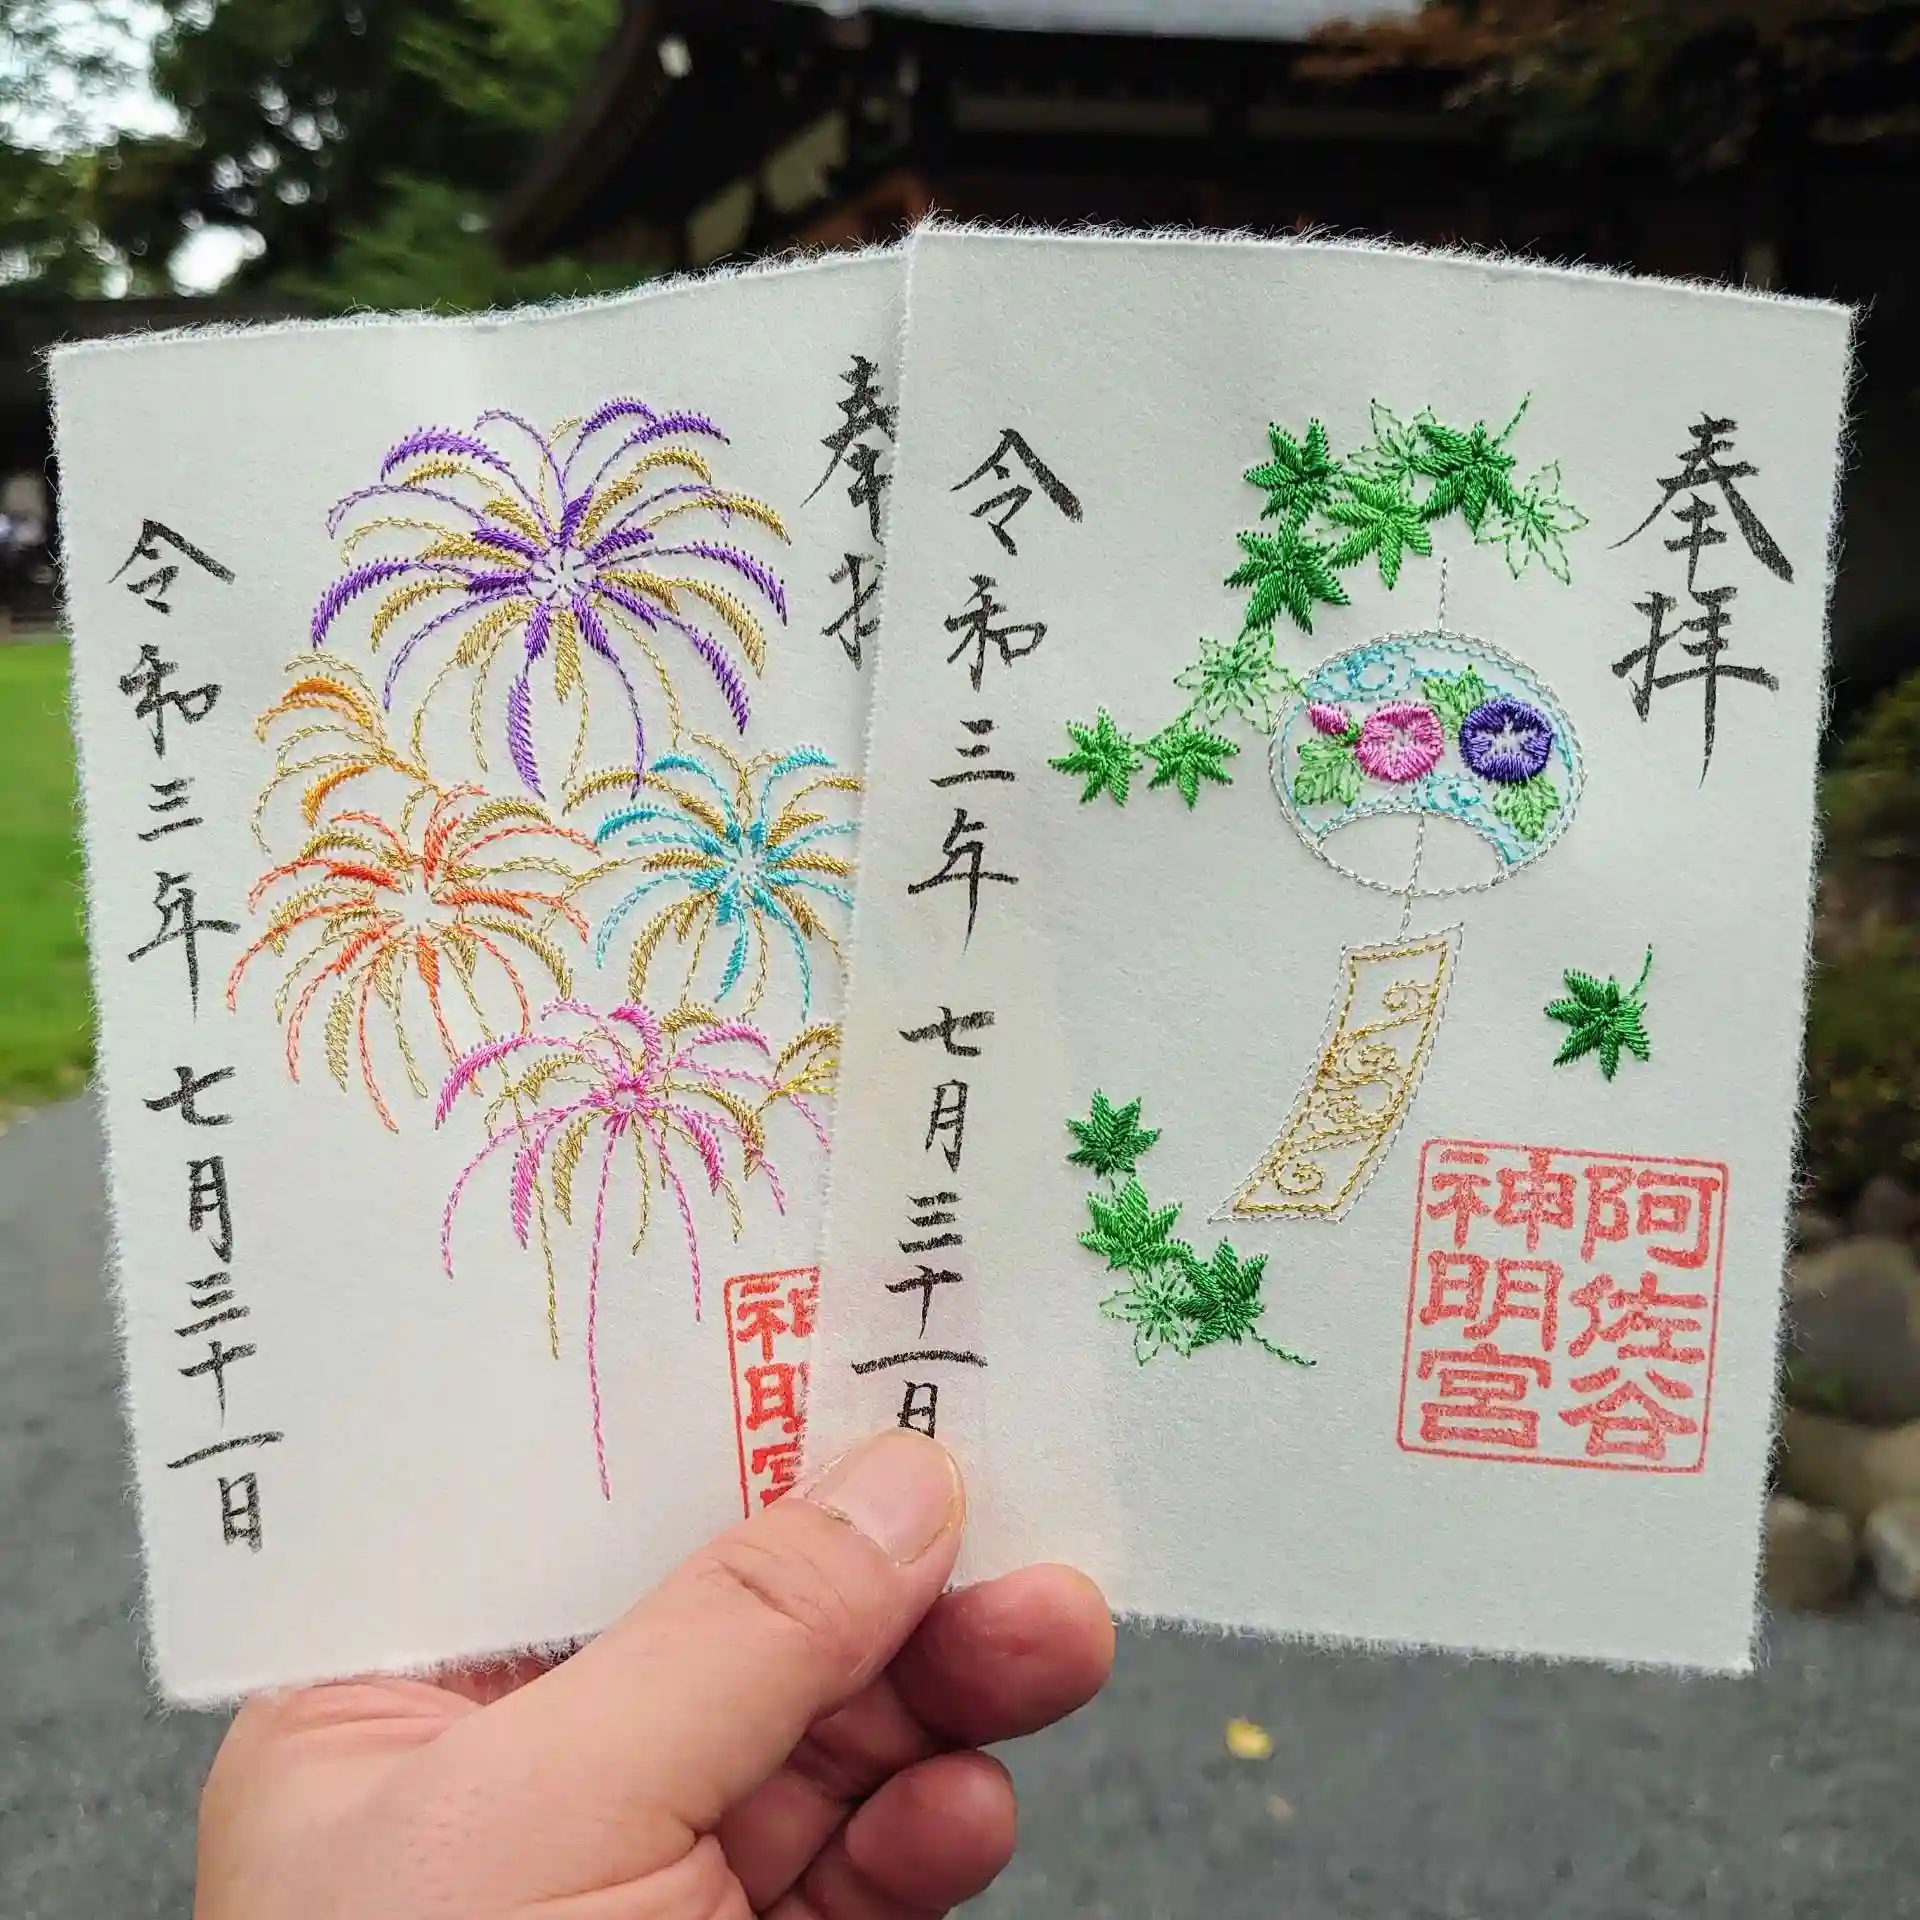 奉拝
令和三年 七月三十一日
神明宮
奉拝
令和三年 七月三十一日
阿佐谷
神明宮